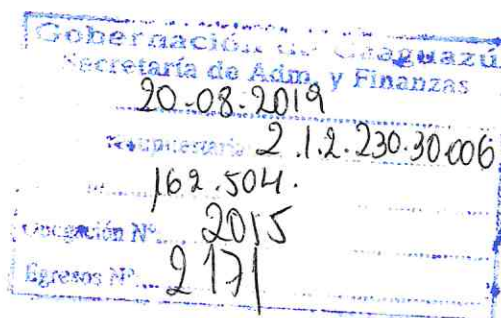 Gobernación de Caaguazú
Secretaría de Adm. y Finanzas
20-08-2019
2.1.2.230.30.006
162.504.
Obligación Nº... 2015
Egresos Nº... 2171